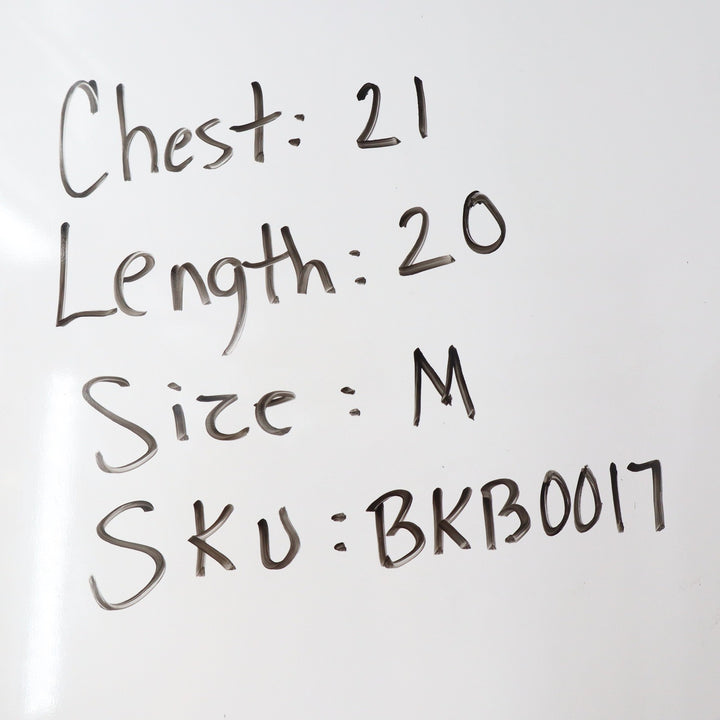 Chest: 21
Length: 20
Size: M
SKU: BKB0017